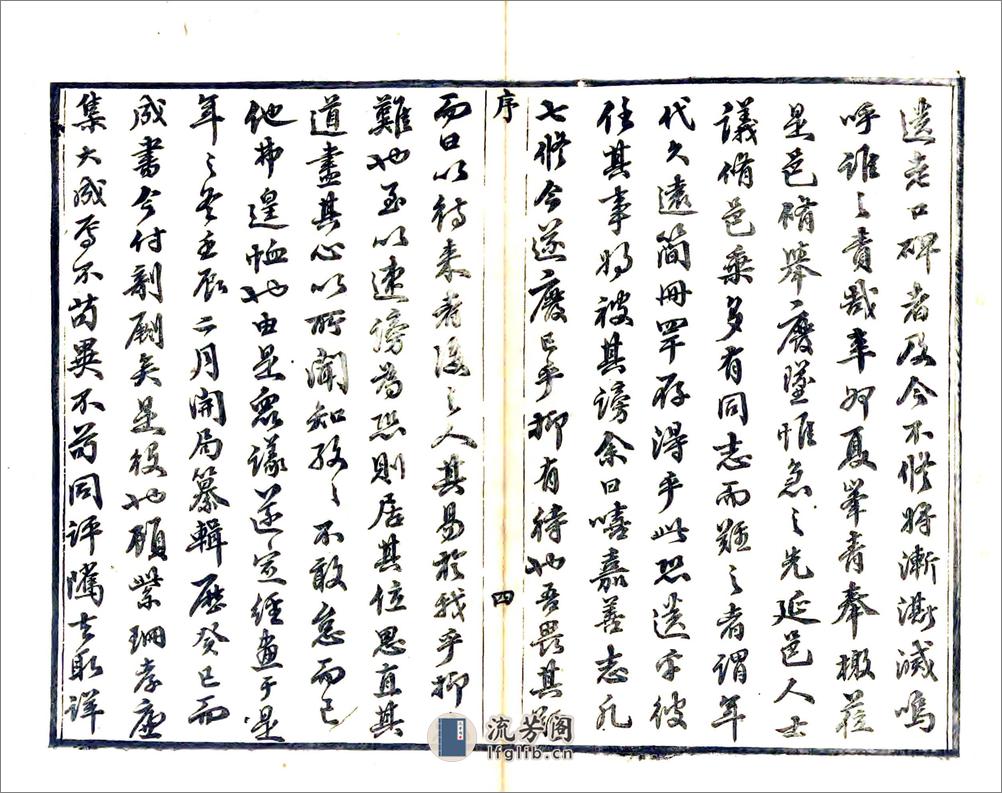 遺老口碑者及今不修將漸澌滅嗚
呼誰之責哉幸如夏峯青奉檄蒞
是邑脩舉廢墜惟急之先延邑人士
議脩邑乘多有同志而難之者謂年
代久遠簡冊罕存得乎此恐遺乎彼
任其事將被其謗余曰嘻嘉善志凡
七修今遂廢已乎抑有待也吾畏其難
序
四
而曰以待來者後之人其易於我乎抑
難也至以速謗為恐則居其位思直其
道盡其心以所聞知孜孜不敢怠而已
他弗遑恤也由是眾議遂定經畫于是
年之冬壬辰二月開局纂輯歷癸巳而
成書今付剞劂矣是役也顧紫珊孝廉
集大成焉不苟異不苟同評隲去取詳
流芳阁
lfglfb.cn